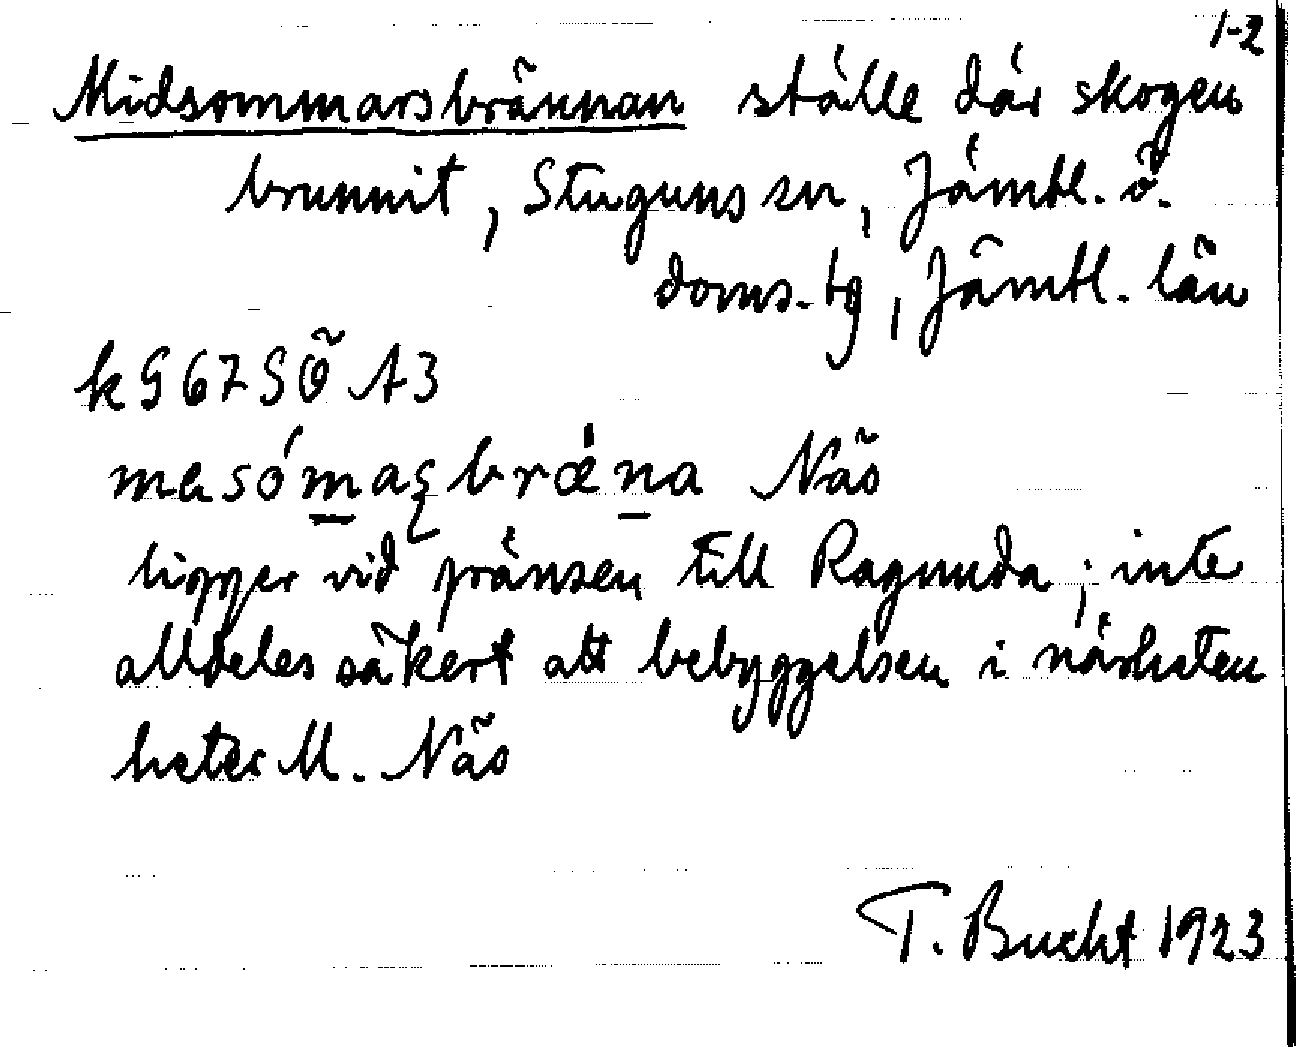 1-2
Midsommarsbrännan ställe där skogen
brunnit, Stuguns sn, Jämtl. ö.
doms. tg, Jämtl. län
k G 67 SÖ A3
Näs
ligger vid gränsen till Ragunda; inte
alldeles säkert att bebyggelsen i närheten
heter M. Näs
T. Bucht 1923